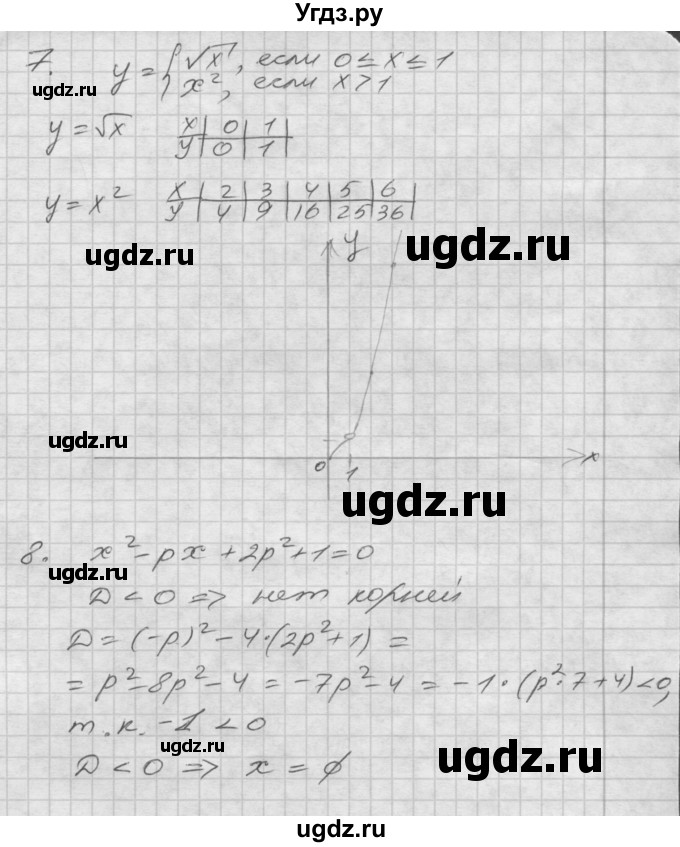 Угдз.ру
7. y = { √x, если 0 ≤ x ≤ 1
x², если x > 1
ugdz.ru
y = √x x | 0 | 1 |
y | 0 | 1 |
y = x² x | 2 | 3 | 4 | 5 | 6 |
y | 4 | 9 | 16 | 25 | 36 |
ugdz.ru
ugdz.ru
y
ugdz.ru
0 1 x
ugdz.ru
8. x² - px + 2p² + 1 = 0
ugdz.ru
D < 0 => нет корней
D = (-p)² - 4·(2p² + 1) =
= p² - 8p² - 4 = -7p² - 4 = -1·(p²·7 + 4) < 0,
т.к. -1 < 0
ugdz.ru
D < 0 => x = ∅
ugdz.ru
ugdz.ru